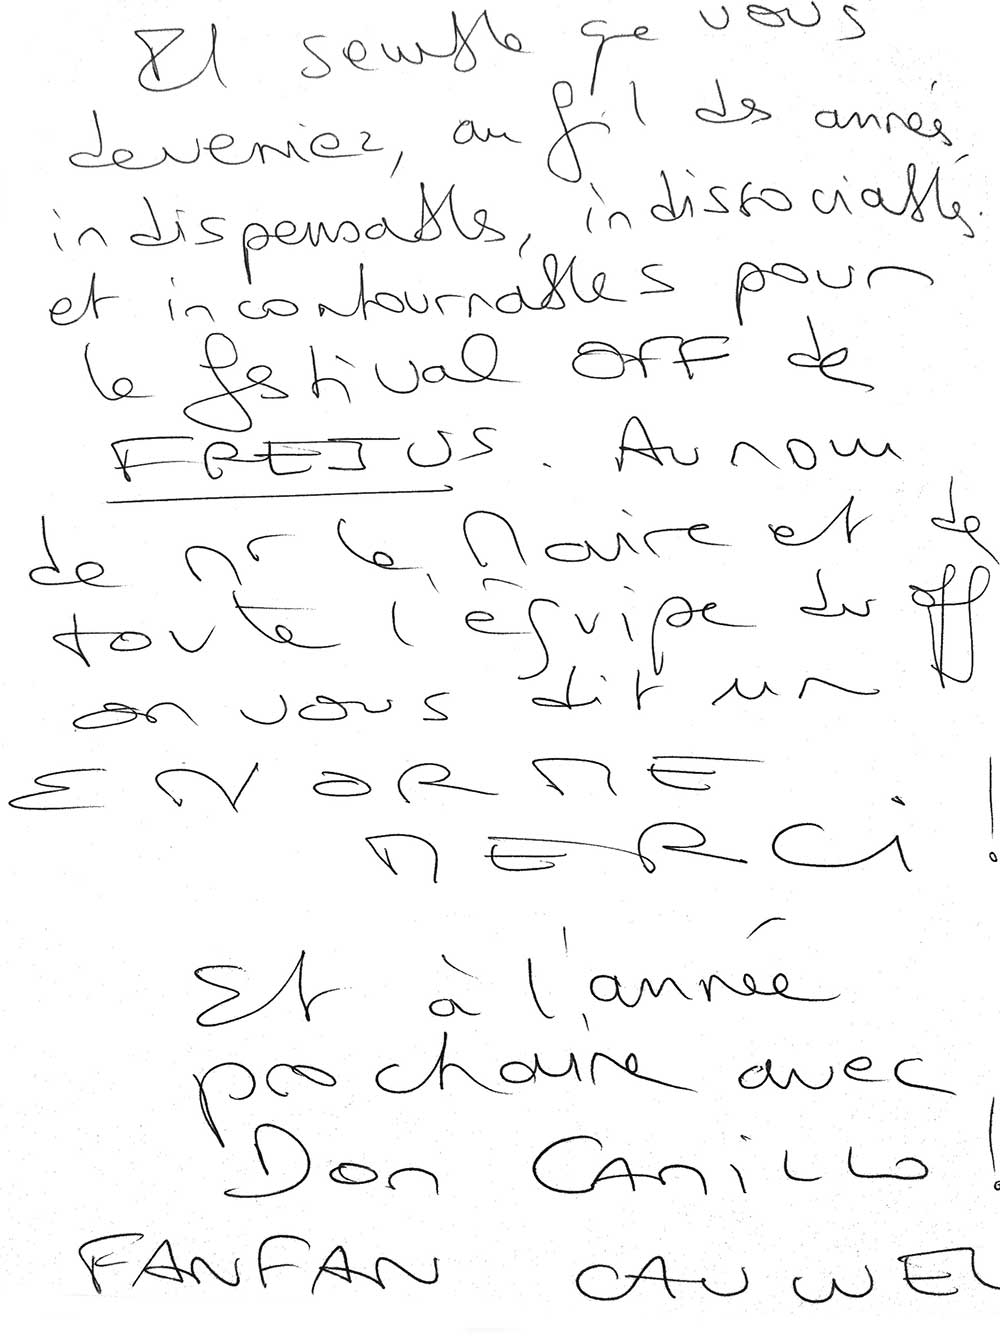 Il semble que vous
deveniez, au fil des années,
indispensables, indissociables
et incontournables pour
le festival OFF de
FREJUS. Au nom
de Mr le Maire et de
toute l'équipe du off
on vous dit un
ENORME
MERCI !
Et à l'année
prochaine avec
Don CAMiLLo !
FANFAN CAUWEL